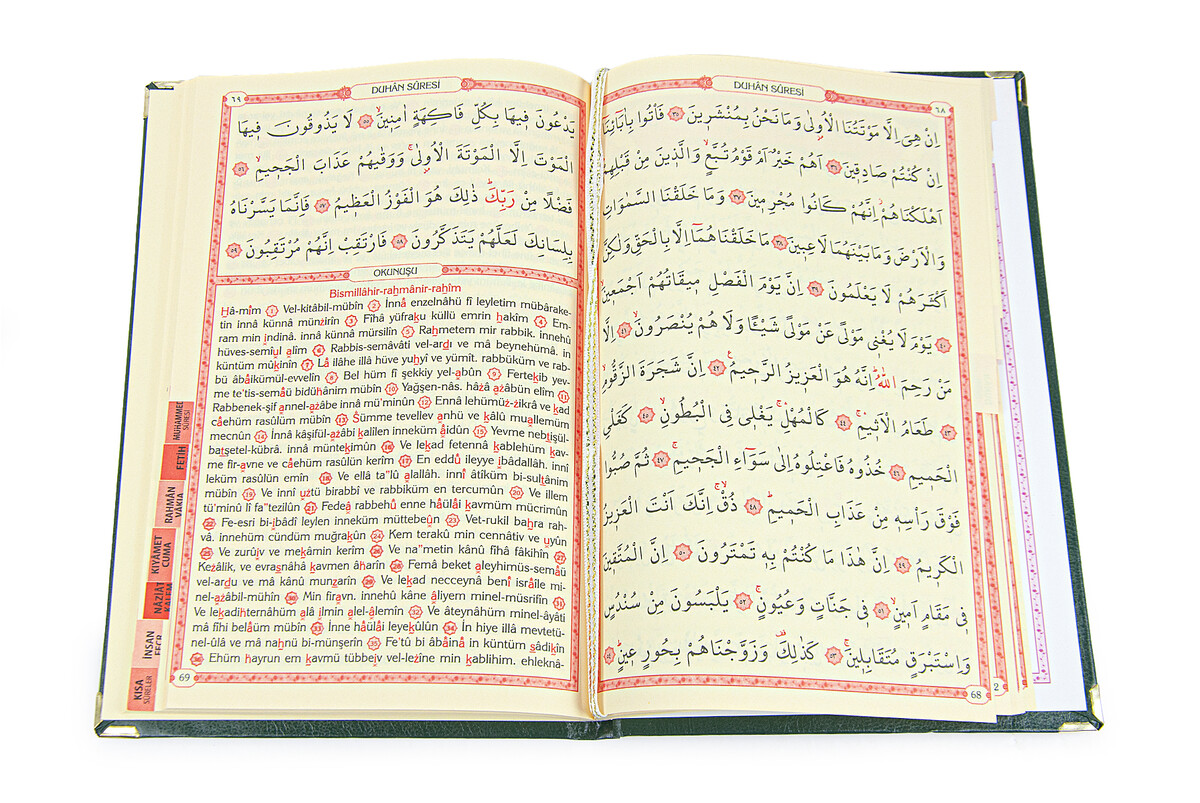 DUHÂN SÛRESİ
٦٨
اِنْ هِىَ اِلَّا مَوْتَتُنَا الْاُولٰى وَمَا نَحْنُ بِمُنْشَرٖينَ ٣٥ فَأْتُوا بِاٰبَٓائِنَٓا
اِنْ كُنْتُمْ صَادِقٖينَ ٣٦ اَهُمْ خَيْرٌ اَمْ قَوْمُ تُبَّعٍۙ وَالَّذٖينَ مِنْ قَبْلِهِمْ
اَهْلَكْنَاهُمْۘ اِنَّهُمْ كَانُوا مُجْرِمٖينَ ٣٧ وَمَا خَلَقْنَا السَّمٰوَاتِ
وَالْاَرْضَ وَمَا بَيْنَهُمَا لَاعِبٖينَ ٣٨ مَا خَلَقْنَاهُمَٓا اِلَّا بِالْحَقِّ وَلٰكِنَّ
اَكْثَرَهُمْ لَا يَعْلَمُونَ ٣٩ اِنَّ يَوْمَ الْفَصْلِ مٖيقَاتُهُمْ اَجْمَعٖينَ
٤٠ يَوْمَ لَا يُغْنٖى مَوْلًى عَنْ مَوْلًى شَيْـًٔا وَلَا هُمْ يُنْصَرُونَۙ ٤١ اِلَّا
مَنْ رَحِمَ اللّٰهُۜ اِنَّهُ هُوَ الْعَزٖيزُ الرَّحٖيمُ ٤٢ اِنَّ شَجَرَةَ الزَّقُّومِ
٤٣ طَعَامُ الْاَثٖيمِۚ ٤٤ كَالْمُهْلِۚ يَغْلٖى فِى الْبُطُونِۙ ٤٥ كَغَلْىِ
الْحَمٖيمِ ٤٦ خُذُوهُ فَاعْتِلُوهُ اِلٰى سَوَٓاءِ الْجَحٖيمِۚ ٤٧ ثُمَّ صُبُّوا
فَوْقَ رَأْسِهٖ مِنْ عَذَابِ الْحَمٖيمِۜ ٤٨ ذُقْۙۚ اِنَّكَ اَنْتَ الْعَزٖيزُ
الْكَرٖيمُ ٤٩ اِنَّ هٰذَا مَا كُنْتُمْ بِهٖ تَمْتَرُونَ ٥٠ اِنَّ الْمُتَّقٖينَ
فٖى مَقَامٍ اَمٖينٍۙ ٥١ فٖى جَنَّاتٍ وَعُيُونٍۚ ٥٢ يَلْبَسُونَ مِنْ سُنْدُسٍ
وَاِسْتَبْرَقٍ مُتَقَابِلٖينَۚ ٥٣ كَذٰلِكَ۠ وَزَوَّجْنَاهُمْ بِحُورٍ عٖينٍۜ ٥٤
68
2
DUHÂN SÛRESİ
٦٩
يَدْعُونَ فٖيهَا بِكُلِّ فَاكِهَةٍ اٰمِنٖينَۙ ٥٥ لَا يَذُوقُونَ فٖيهَا
الْمَوْتَ اِلَّا الْمَوْتَةَ الْاُولٰىۚ وَوَقٰيهُمْ عَذَابَ الْجَحٖيمِۙ ٥٦
فَضْلًا مِنْ رَبِّكَۜ ذٰلِكَ هُوَ الْفَوْزُ الْعَظٖيمُ ٥٧ فَاِنَّمَا يَسَّرْنَاهُ
بِلِسَانِكَ لَعَلَّهُمْ يَتَذَكَّرُونَ ٥٨ فَارْتَقِبْ اِنَّهُمْ مُرْتَقِبُونَ ٥٩
OKUNUŞU
Bismillâhir-rahmânir-rahîm
Hâ-mîm 1 Vel-kitâbil-mübîn 2 İnnâ enzelnâhü fî leyletim mübârake-
tin innâ künnâ münzirîn 3 Fîhâ yüfraku küllü emrin hakîm 4 Em-
ram min indinâ. innâ künnâ mürsilîn 5 Rahmetem mir rabbik. innehü
hüves-semîul alîm 6 Rabbis-semâvâti vel-ardı ve mâ beynehümâ. in
küntüm mûkinîn 7 Lâ ilâhe illâ hüve yuhyî ve yümît. rabbüküm ve rab-
bü âbâikümül-evvelîn 8 Bel hüm fî şekkiy yel-abûn 9 Fertekib yev-
me te'tis-semâü bidühânim mübîn 10 Yağşen-nâs. hâzâ azâbün elîm 11
Rabbenek-şif annel-azâbe innâ mü'minûn 12 Ennâ lehümüz-zikrâ ve kad
câehüm rasûlün mübîn 13 Sümme tevellev anhü ve kâlû muallemüm
mecnûn 14 İnnâ kâşifül-azâbi kalîlen inneküm âidûn 15 Yevme nebtişül-
batşetel-kübrâ. innâ müntekimûn 16 Ve lekad fetennâ kablehüm kav-
me fir-avne ve câehüm rasûlün kerîm 17 En eddû ileyye ıbâdallâh. innî
leküm rasûlün emîn 18 Ve ellâ ta"lû alallâh. innî âtîküm bi-sultânim
mübîn 19 Ve innî uztü birabbî ve rabbiküm en tercumûn 20 Ve illem
tü'minû lî fa"tezilûn 21 Fedeâ rabbehû enne hâülâi kavmüm mücrimûn
22 Fe-esri bi-ıbâdî leylen inneküm müttebeûn 23 Vet-rukil bahra rah-
vâ. innehüm cündüm muğrakûn 24 Kem terakû min cennâtiv ve uyûn
25 Ve zurûıv ve mekâmin kerîm 26 Ve na"metin kânû fîhâ fâkihîn 27
Kezâlik, ve evrasnâhâ kavmen âharîn 28 Femâ beket aleyhimüs-semâü
vel-ardu ve mâ kânû munzarîn 29 Ve lekad necceynâ benî isrâîle mi-
nel-azâbil-mühîn 30 Min firavn. innehû kâne âliyem minel-müsrifîn 31
Ve lekadihternâhüm alâ ılmin alel-âlemîn 32 Ve âteynâhüm minel-âyâti
mâ fîhi belâüm mübîn 33 İnne hâülâi leyekûlûn 34 İn hiye illâ mevtetü-
nel-ûlâ ve mâ nahnü bi-münşerîn 35 Fe'tû bi âbâinâ in küntüm sâdikîn
36 Ehüm hayrun em kavmü tübbeıv vel-lezîne min kablihim. ehleknâ-
69
MUHAMMED
SÛRESİ
FETİH
RAHMÂN
VÂKIA
KIYAMET
CUMA
NÂZİÂT
İNSAN
KISA
SÛRELER